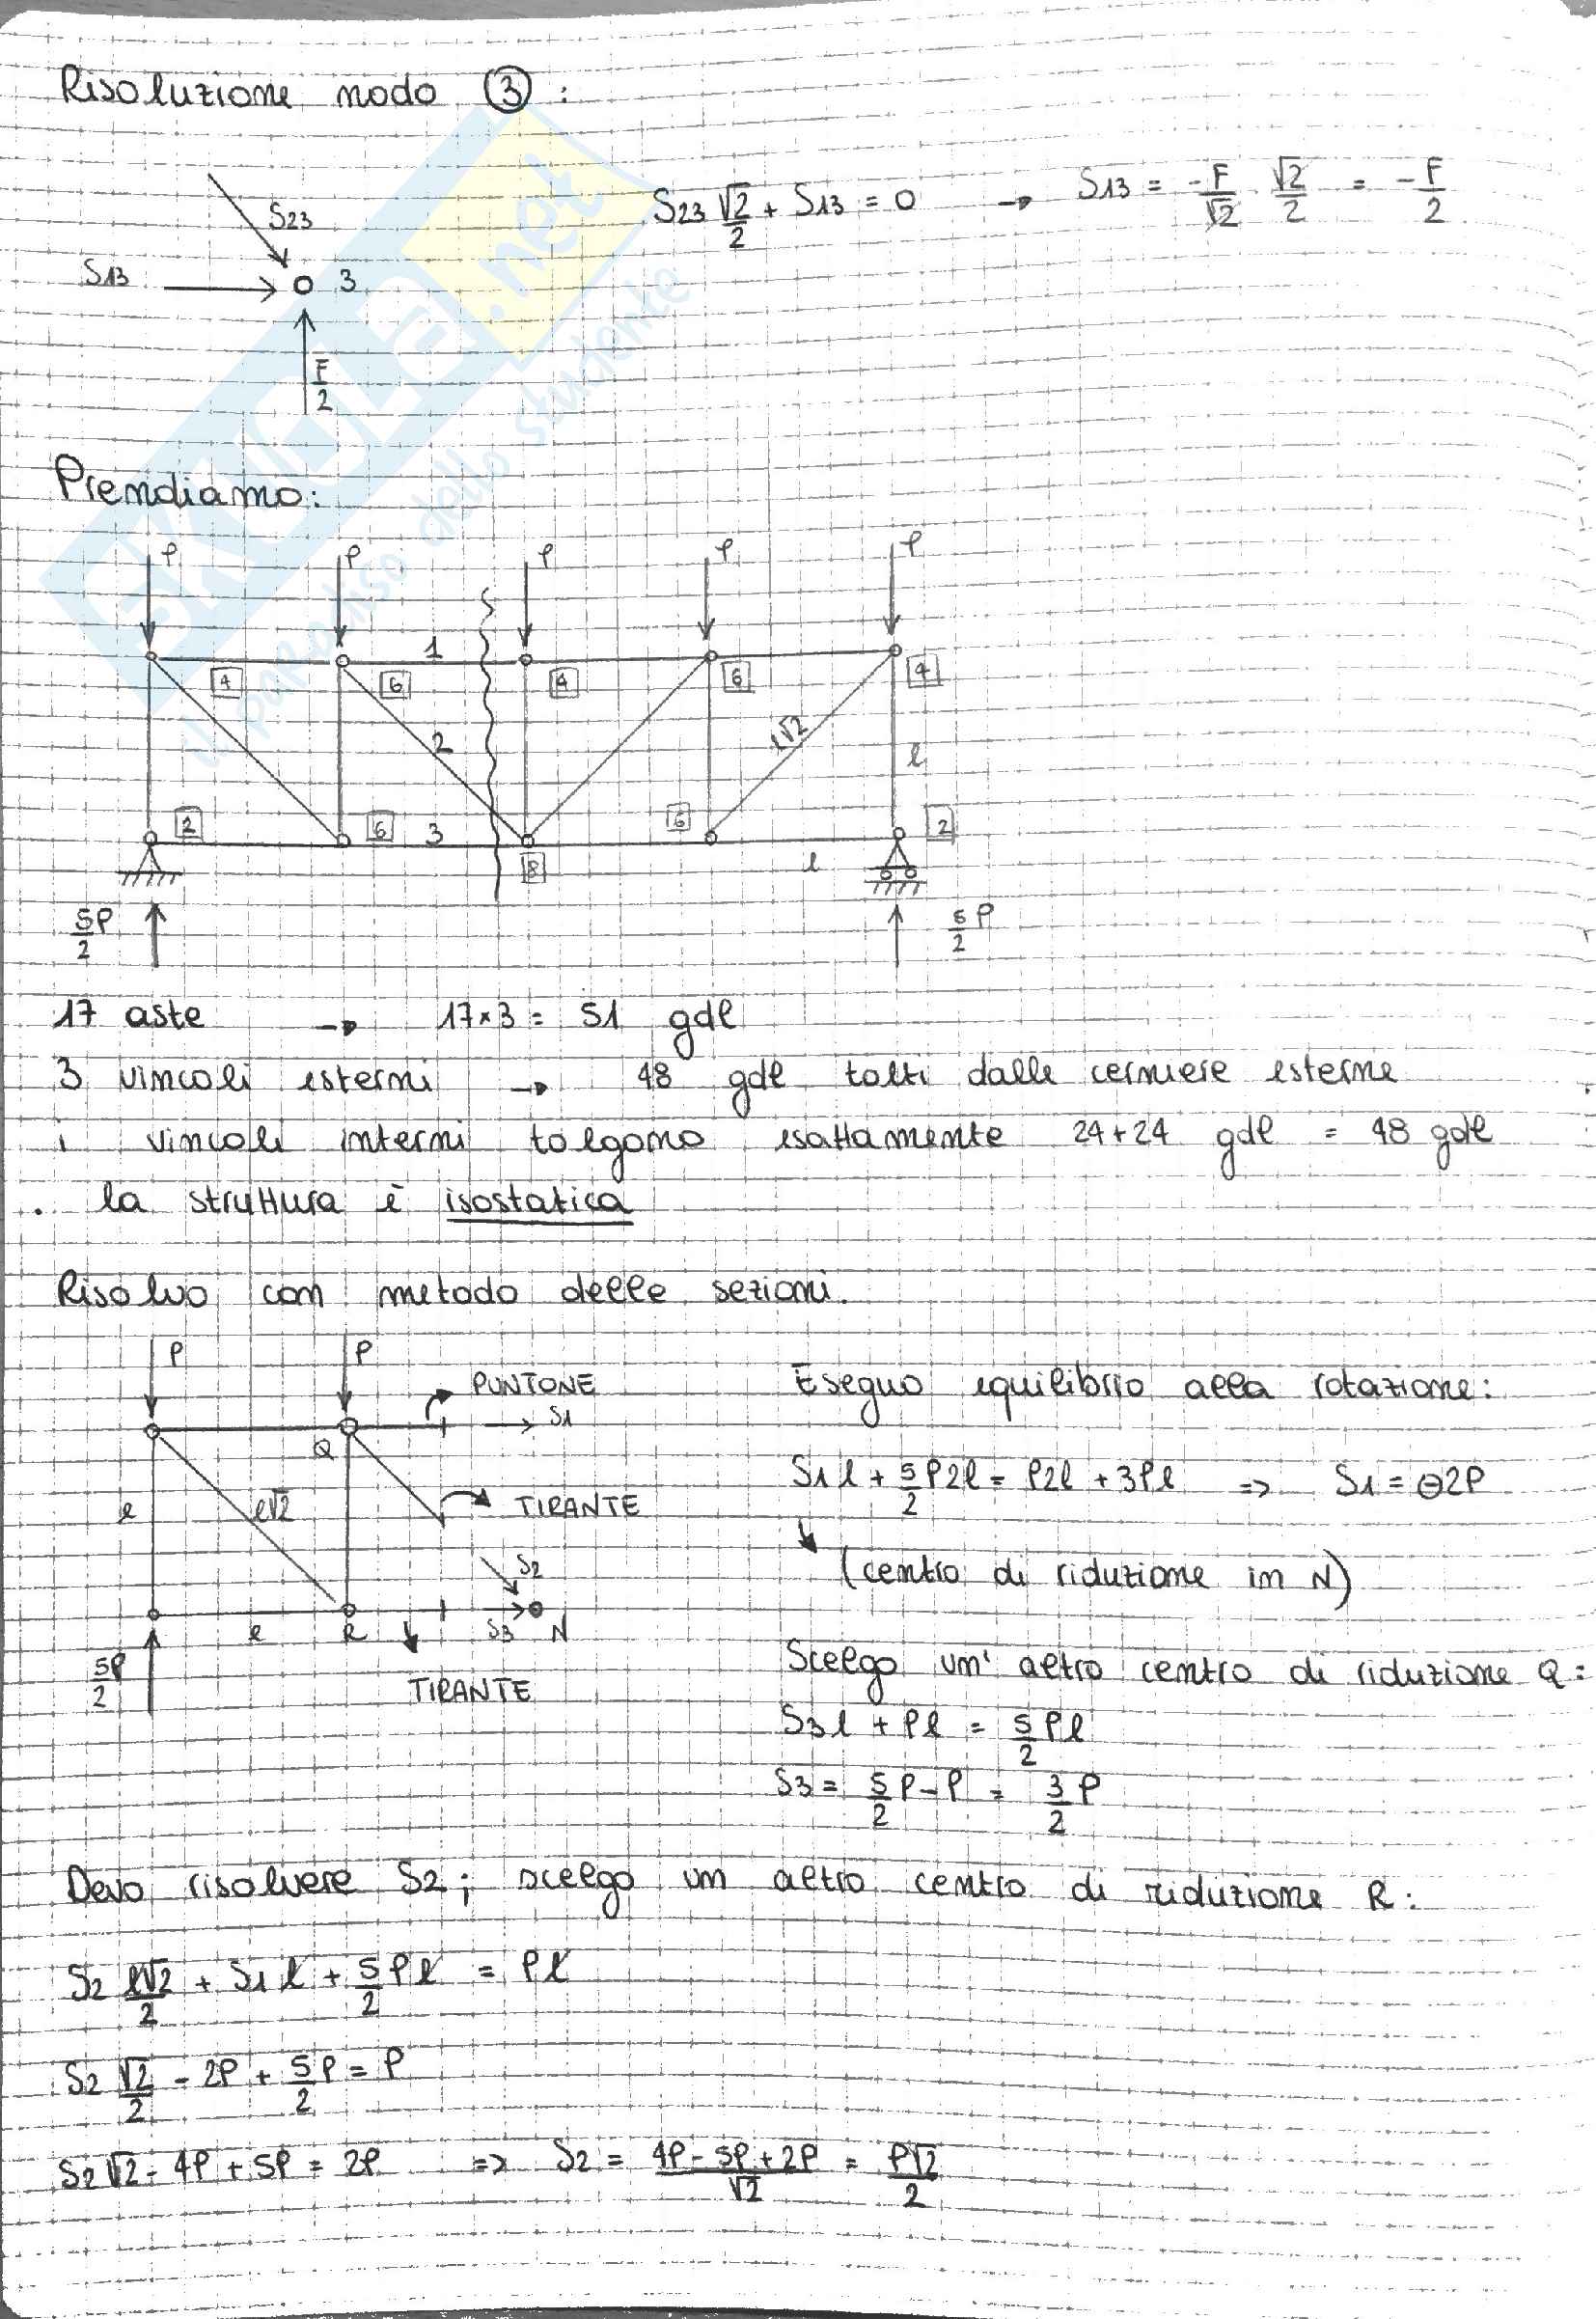 Risoluzione nodo ③ :
S23 √2/2 + S13 = 0 → S13 = -F/√2 · √2/2 = -F/2
S23
S13
3
F/2
Prendiamo:
P P P P P
1
4 6 4 6 4
2
l√2
l
2 6 3 8 6 2
l
5P/2
5/2 P
17 aste → 17×3 = 51 gdl
3 vincoli esterni → 48 gdl tolti dalle cerniere esterne
i vincoli interni tolgono esattamente 24+24 gdl = 48 gdl
. la struttura è isostatica
Risolvo con metodo delle sezioni.
P P
PUNTONE
S1
Q
l
l√2
TIRANTE
S2
S3 N
l
R
5P/2
TIRANTE
Eseguo equilibrio alla rotazione:
S1 l + 5/2 P2l = P2l + 3Pl => S1 = ⊖2P
(centro di riduzione in N)
Scelgo un' altro centro di riduzione Q:
S3 l + Pl = 5/2 Pl
S3 = 5/2 P - P = 3/2 P
Devo risolvere S2; scelgo un altro centro di riduzione R:
S2 l√2/2 + S1 l + 5/2 Pl = Pl
S2 √2/2 - 2P + 5/2 P = P
S2 √2 - 4P + 5P = 2P => S2 = 4P - 5P + 2P/√2 = P√2/2
SKUOLA.net
il paradiso dello studente